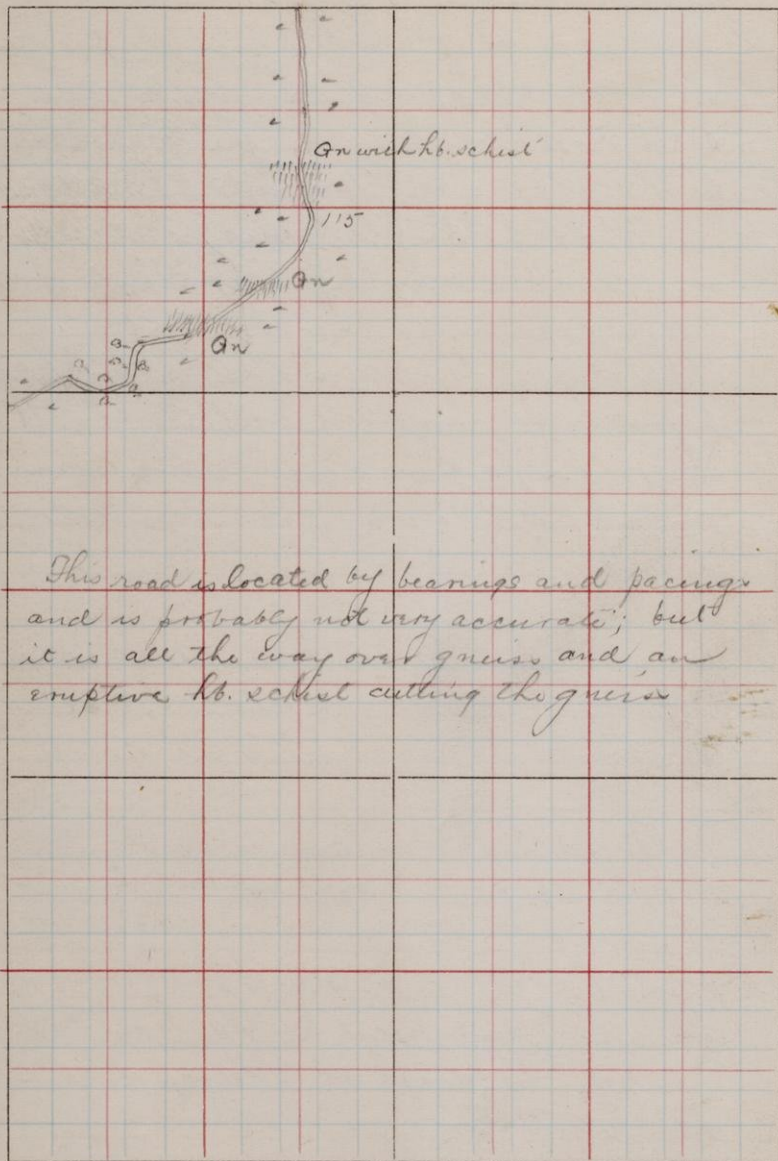 Gn with hb. schist
115
Gn
Gn
This road is located by bearings and pacings
and is probably not very accurate; but
it is all the way over gneiss and an
eruptive hb. schist cutting the gneiss